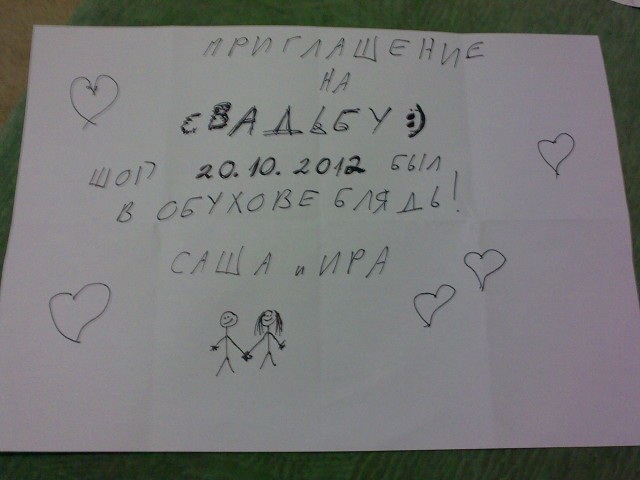 ПРИГЛАШЕНИЕ
НА
СВАДЬБУ :)
ШОП 20.10.2012 БЫЛ
В ОБУХОВЕ БЛЯДЬ!
САША и ИРА